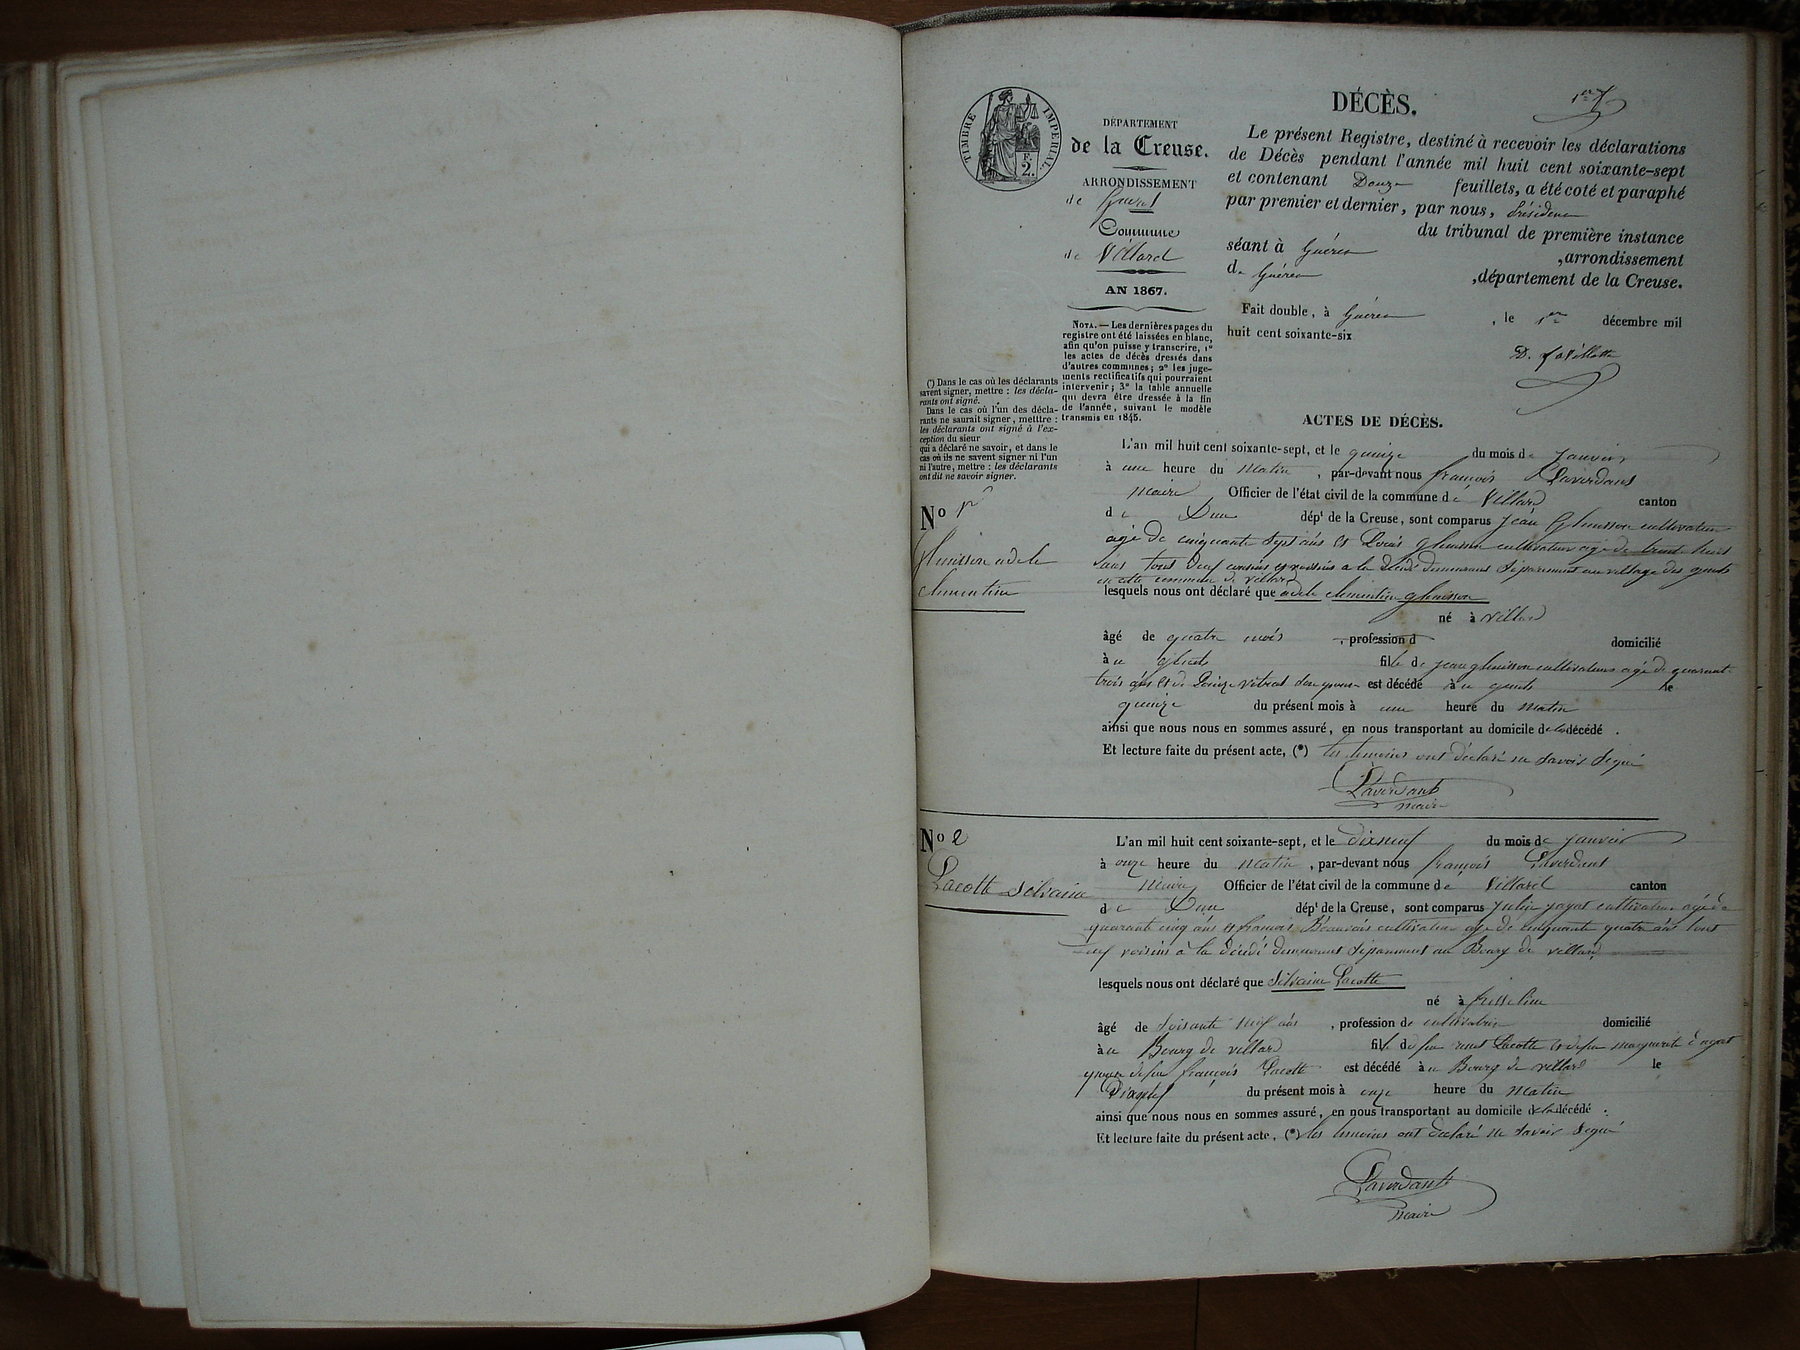 DÉCÈS.
1er
TIMBRE IMPÉRIAL
F.
2.
DÉPARTEMENT
de la Creuse.
ARRONDISSEMENT
de
Commune
de Villard
AN 1867.
NOTA. — Les dernières pages du
registre ont été laissées en blanc,
afin qu'on puisse y transcrire, 1°
les actes de décès dressés dans
d'autres communes; 2° les juge-
ments rectificatifs qui pourraient
intervenir; 3° la table annuelle
qui devra être dressée à la fin
de l'année, suivant le modèle
transmis en 1845.
(*) Dans le cas où les déclarants
savent signer, mettre : les décla-
rants ont signé.
Dans le cas où l'un des décla-
rants ne saurait signer, mettre :
les déclarants ont signé à l'ex-
ception du sieur
qui a déclaré ne savoir, et dans le
cas où ils ne savent signer ni l'un
ni l'autre, mettre : les déclarants
ont dit ne savoir signer.
Le présent Registre, destiné à recevoir les déclarations
de Décès pendant l'année mil huit cent soixante-sept
et contenant Douze feuillets, a été coté et paraphé
par premier et dernier, par nous, Président
du tribunal de première instance
séant à Guéret ,arrondissement
de Guéret ,département de la Creuse.
Fait double, à Guéret , le 1er décembre mil
huit cent soixante-six
ACTES DE DÉCÈS.
No 1er
adele
clementine
L'an mil huit cent soixante-sept, et le quinze du mois de janvier
à une heure du Matin , par-devant nous françois Laverdant
Maire , Officier de l'état civil de la commune de Villard canton
de Dun dépt de la Creuse, sont comparus Jean cultivateur
agé de cinquante sept ans et Louis cultivateur agé de trente huit
ans tous deux cousins et voisins a la décédé demeurant séparement au village des
en cette commune de Villard
lesquels nous ont déclaré que adele clementine
né à Villard
âgé de quatre mois , profession d domicilié
à u fille de jean cultivateur agé de quarante
trois ans et de Louise est décédé à u le
quinze du présent mois à une heure du Matin
ainsi que nous nous en sommes assuré, en nous transportant au domicile de la décédé .
Et lecture faite du présent acte, (*) les temoins ont déclaré ne savoir signé
Laverdant
maire
No 2
Lacotte silvaine
L'an mil huit cent soixante-sept, et le dixneuf du mois de janvier
à onze heure du Matin , par-devant nous françois Laverdant
Maire Officier de l'état civil de la commune de Villard canton
de Dun dépt de la Creuse, sont comparus Julien cultivateur agé de
quarante cinq ans et françois Beauvais cultivateur agé de cinquante quatre ans tous
deux voisins à la décédé demeurant séparement au Bourg de villard
lesquels nous ont déclaré que Silvaine Lacotte
né à fresselin
âgé de soisante neuf ans , profession de cultivatrice domicilié
à u Bourg de villard fille de feu Lacotte et de feu marguerite
de feu françois Lacotte est décédé à u Bourg de villard le
Dixneuf du présent mois à onze heure du Matin
ainsi que nous nous en sommes assuré, en nous transportant au domicile de la décédé .
Et lecture faite du présent acte, (*) les temoins ont declaré ne savoir signé
Laverdant
maire